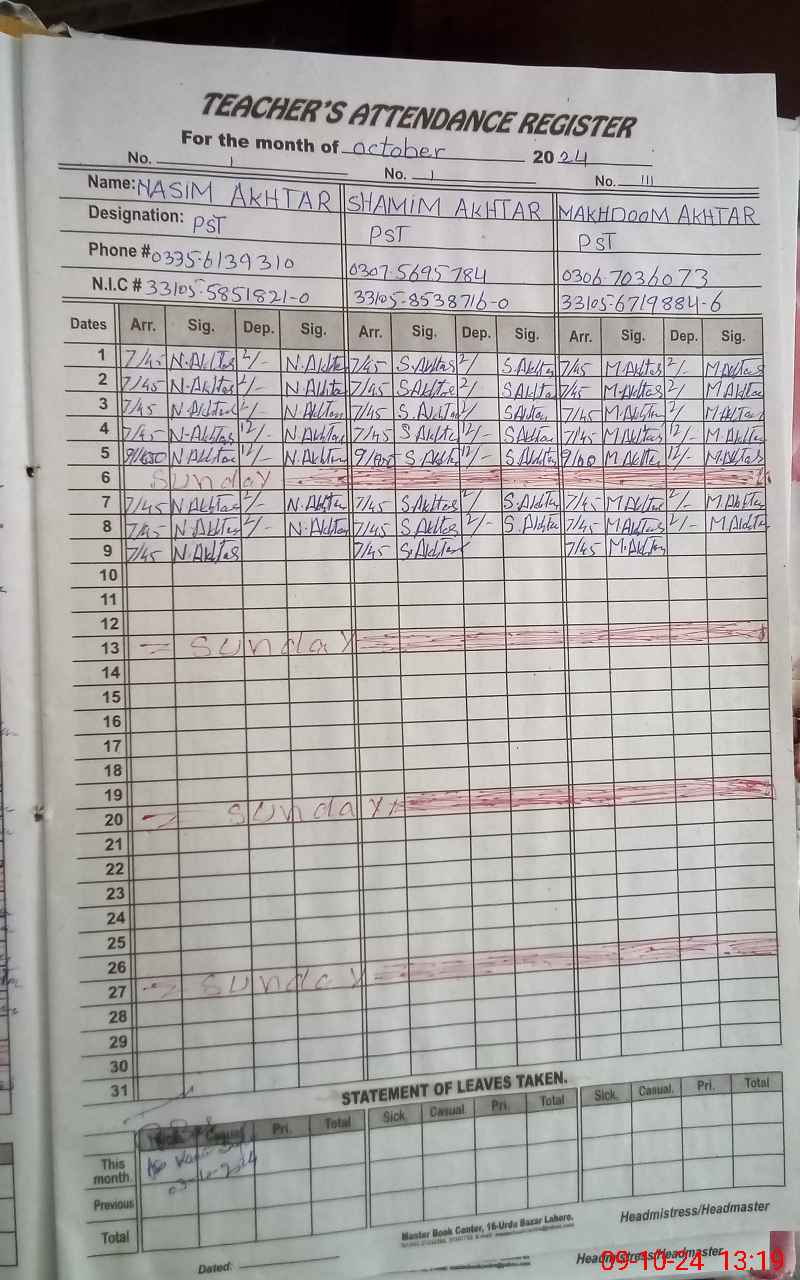 TEACHER'S ATTENDANCE REGISTER
For the month of October 2024
No. I No. I No. III
Name: NASIM AKHTAR SHAMIM AKHTAR MAKHDOOM AKHTAR
Designation: PST PST PST
Phone # 0335-6139310 0307-5695784 0306-7036073
N.I.C # 33105-5851821-0 33105-8538716-0 33105-6719884-6
Dates Arr. Sig. Dep. Sig. Arr. Sig. Dep. Sig. Arr. Sig. Dep. Sig.
1 7/45 N.Akhtar 2/- N.Akhtar 7/45 S.Akhtar 2/ S.Akhtar 7/45 M.Akhtar 2/- M.Akhtar
2 7/45 N.Akhtar 2/- N.Akhtar 7/45 S.Akhtar 2/ S.Akhtar 7/45 M.Akhtar 2/ M.Akhtar
3 7/45 N.Akhtar 2/- N.Akhtar 7/45 S.Akhtar 2/ S.Akhtar 7/45 M.Akhtar 2/ M.Akhtar
4 7/45 N.Akhtar 12/- N.Akhtar 7/45 S.Akhtar 12/- S.Akhtar 7/45 M.Akhtar 12/- M.Akhtar
5 N.Akhtar 12/- N.Akhtar S.Akhtar 12/- S.Akhtar 9/00 M.Akhtar 12/- M.Akhtar
6 Sunday
7 7/45 N.Akhtar 2/- N.Akhtar 7/45 S.Akhtar 2/ S.Akhtar 7/45 M.Akhtar 2/- M.Akhtar
8 7/45 N.Akhtar 2/- N.Akhtar 7/45 S.Akhtar 2/- S.Akhtar 7/45 M.Akhtar 2/- M.Akhtar
9 7/45 N.Akhtar 7/45 S.Akhtar 7/45 M.Akhtar
10
11
12
13 = Sunday
14
15
16
17
18
19
20 = Sunday
21
22
23
24
25
26
27 = Sunday
28
29
30
31
STATEMENT OF LEAVES TAKEN.
Sick. Casual. Pri. Total Sick. Casual. Pri. Total Sick. Casual. Pri. Total
This month.
Previous
Total
Master Book Center, 16-Urdu Bazar Lahore. Headmistress/Headmaster
Dated: Headmistress/Headmaster
09-10-24 13:19